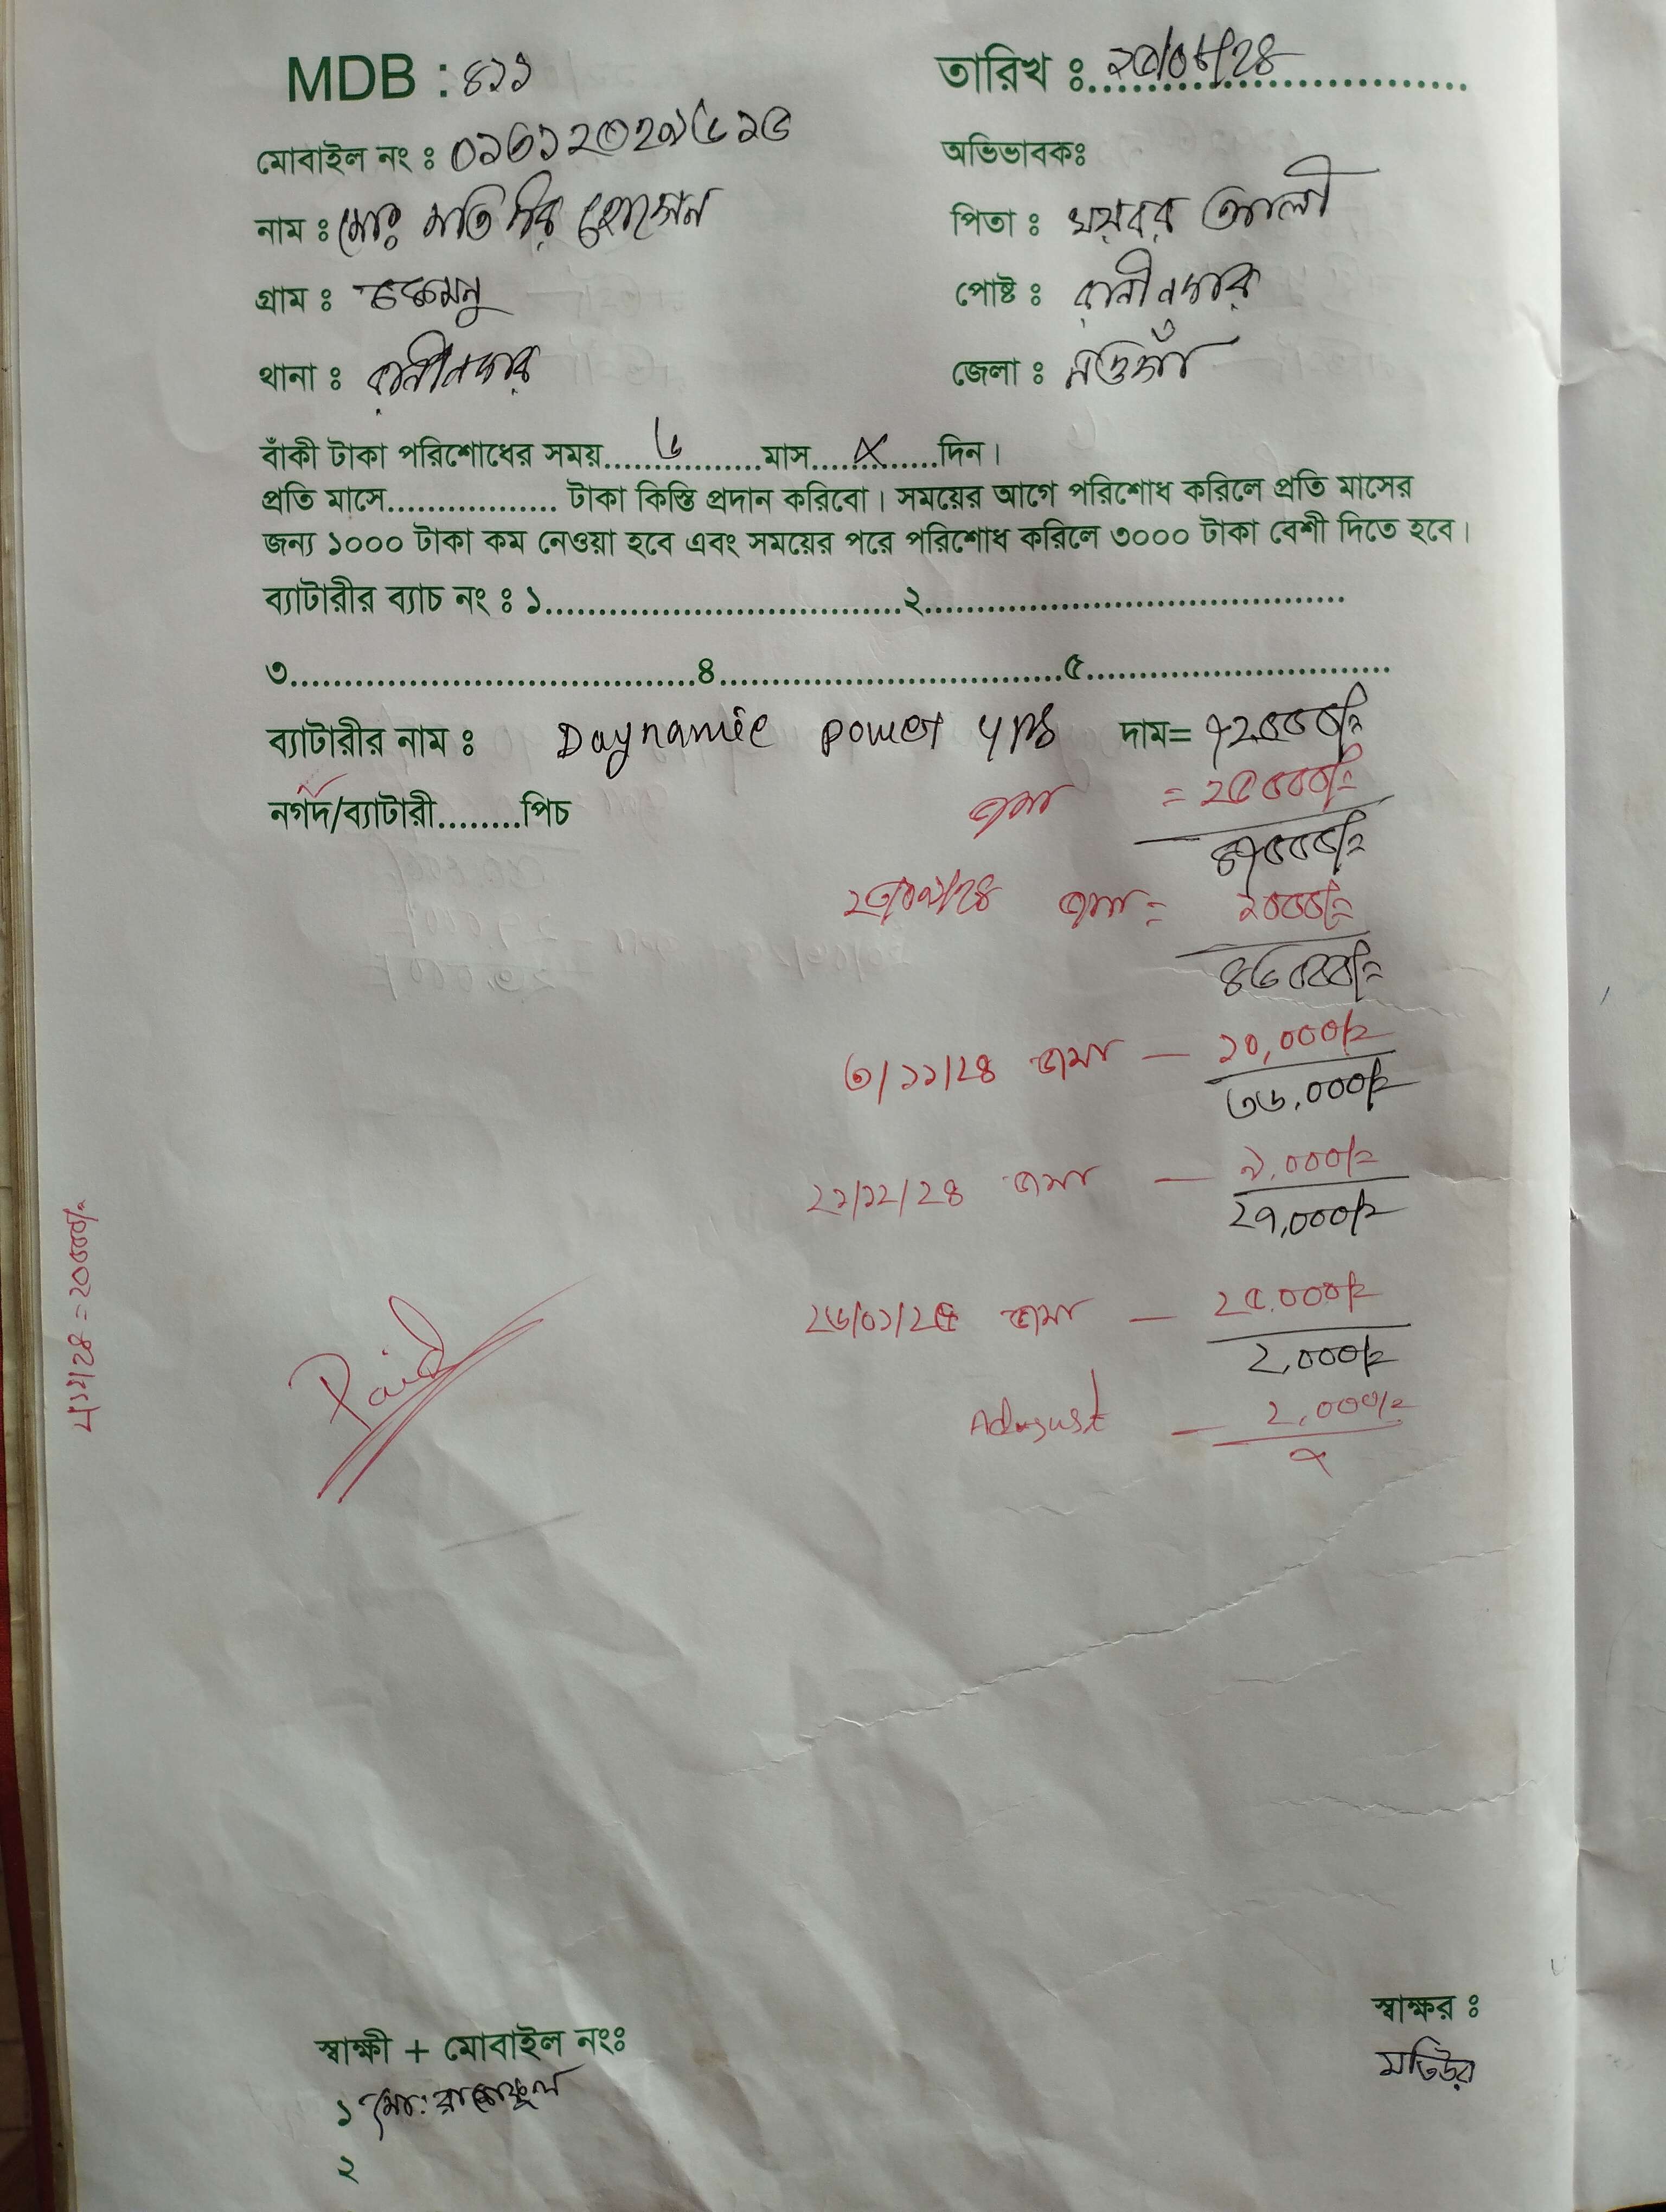 MDB : ৪১১
তারিখ : ২৫/০৮/২৪
মোবাইল নং :
অভিভাবকঃ
নাম : মোঃ মতিউর হোসেন
পিতা : আলী
গ্রাম :
পোষ্ট : রানীনগর
থানা : রানীনগর
জেলা : নওগাঁ
বাঁকী টাকা পরিশোধের সময়.......৬.......মাস....×....দিন।
প্রতি মাসে................. টাকা কিস্তি প্রদান করিবো। সময়ের আগে পরিশোধ করিলে প্রতি মাসের
জন্য ১০০০ টাকা কম নেওয়া হবে এবং সময়ের পরে পরিশোধ করিলে ৩০০০ টাকা বেশী দিতে হবে।
ব্যাটারীর ব্যাচ নং : ১..................................২........................................
৩......................................৪..................................৫.............................
ব্যাটারীর নাম : Daynamic power 4 Ps দাম= ৭২০০০/=
নগদ/ব্যাটারী........পিচ
জমা = ২৫০০০/=
৪৭০০০/=
২৩/০৯/২৪ জমা = ১০০০/=
৪৬০০০/=
৩/১১/২৪ জমা — ১০,০০০/=
৩৬,০০০/=
২১/১২/২৪ জমা — ৯,০০০/=
২৭,০০০/=
২৬/০১/২৫ জমা — ২৫,০০০/=
২,০০০/=
Adjust — ২,০০০/=
×
Paid
স্বাক্ষর :
মতিউর
স্বাক্ষী + মোবাইল নংঃ
১ মোঃ
২